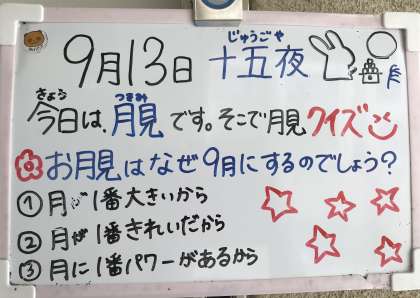 9月13日 十五夜
じゅうごや
今日は、月見です。そこで月見クイズ
きょう つきみ
お月見はなぜ9月にするのでしょう?
① 月が1番大きいから
② 月が1番きれいだから
③ 月に1番パワーがあるから